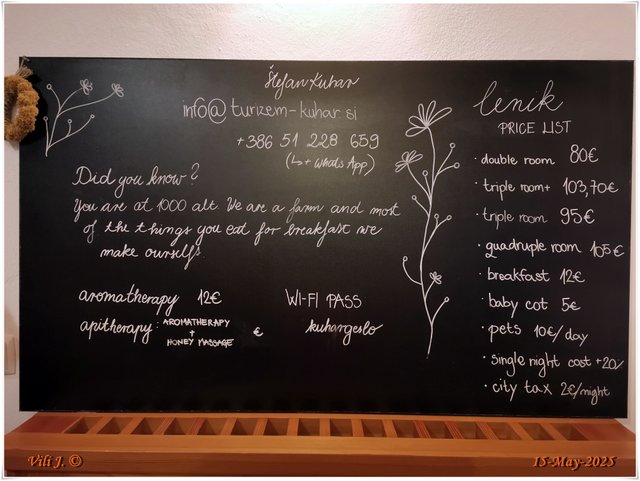 Štefan Kuhar
info@turizem-kuhar.si
+386 51 228 659
(↳ + WhatsApp)
Did you know?
You are at 1000 alt. We are a farm and most
of the things you eat for breakfast we
make ourself.
aromatherapy 12€
apitherapy: AROMATHERAPY
+
HONEY MASSAGE €
WI-FI PASS
kuhargeslo
lenik
PRICE LIST
· double room 80€
· triple room+ 103,70€
· triple room 95€
· quadruple room 105€
· breakfast 12€
· baby cot 5€
· pets 10€/day
· single night cost +20%
· city tax 2€/night
Vili J. ©
15-May-2025